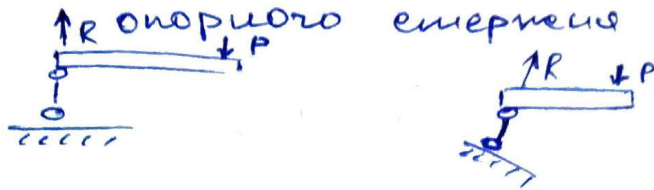 R опорного стержня
P
R
P